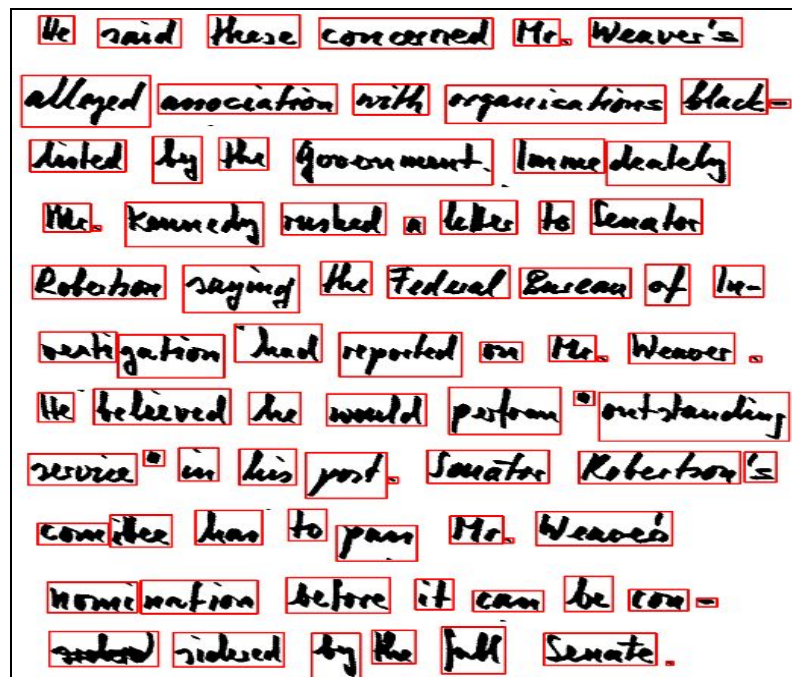 He said these concerned Mr. Weaver's
alleged association with organisations black-
listed by the Government. Immediately
Mr. Kennedy rushed a letter to Senator
Robertson saying the Federal Bureau of In-
vestigation had reported on Mr. Weaver.
He believed he would perform "outstanding
service" in his post. Senator Robertson's
comittee has to pass Mr. Weaver's
nomination before it can be con-
sidered by the full Senate.